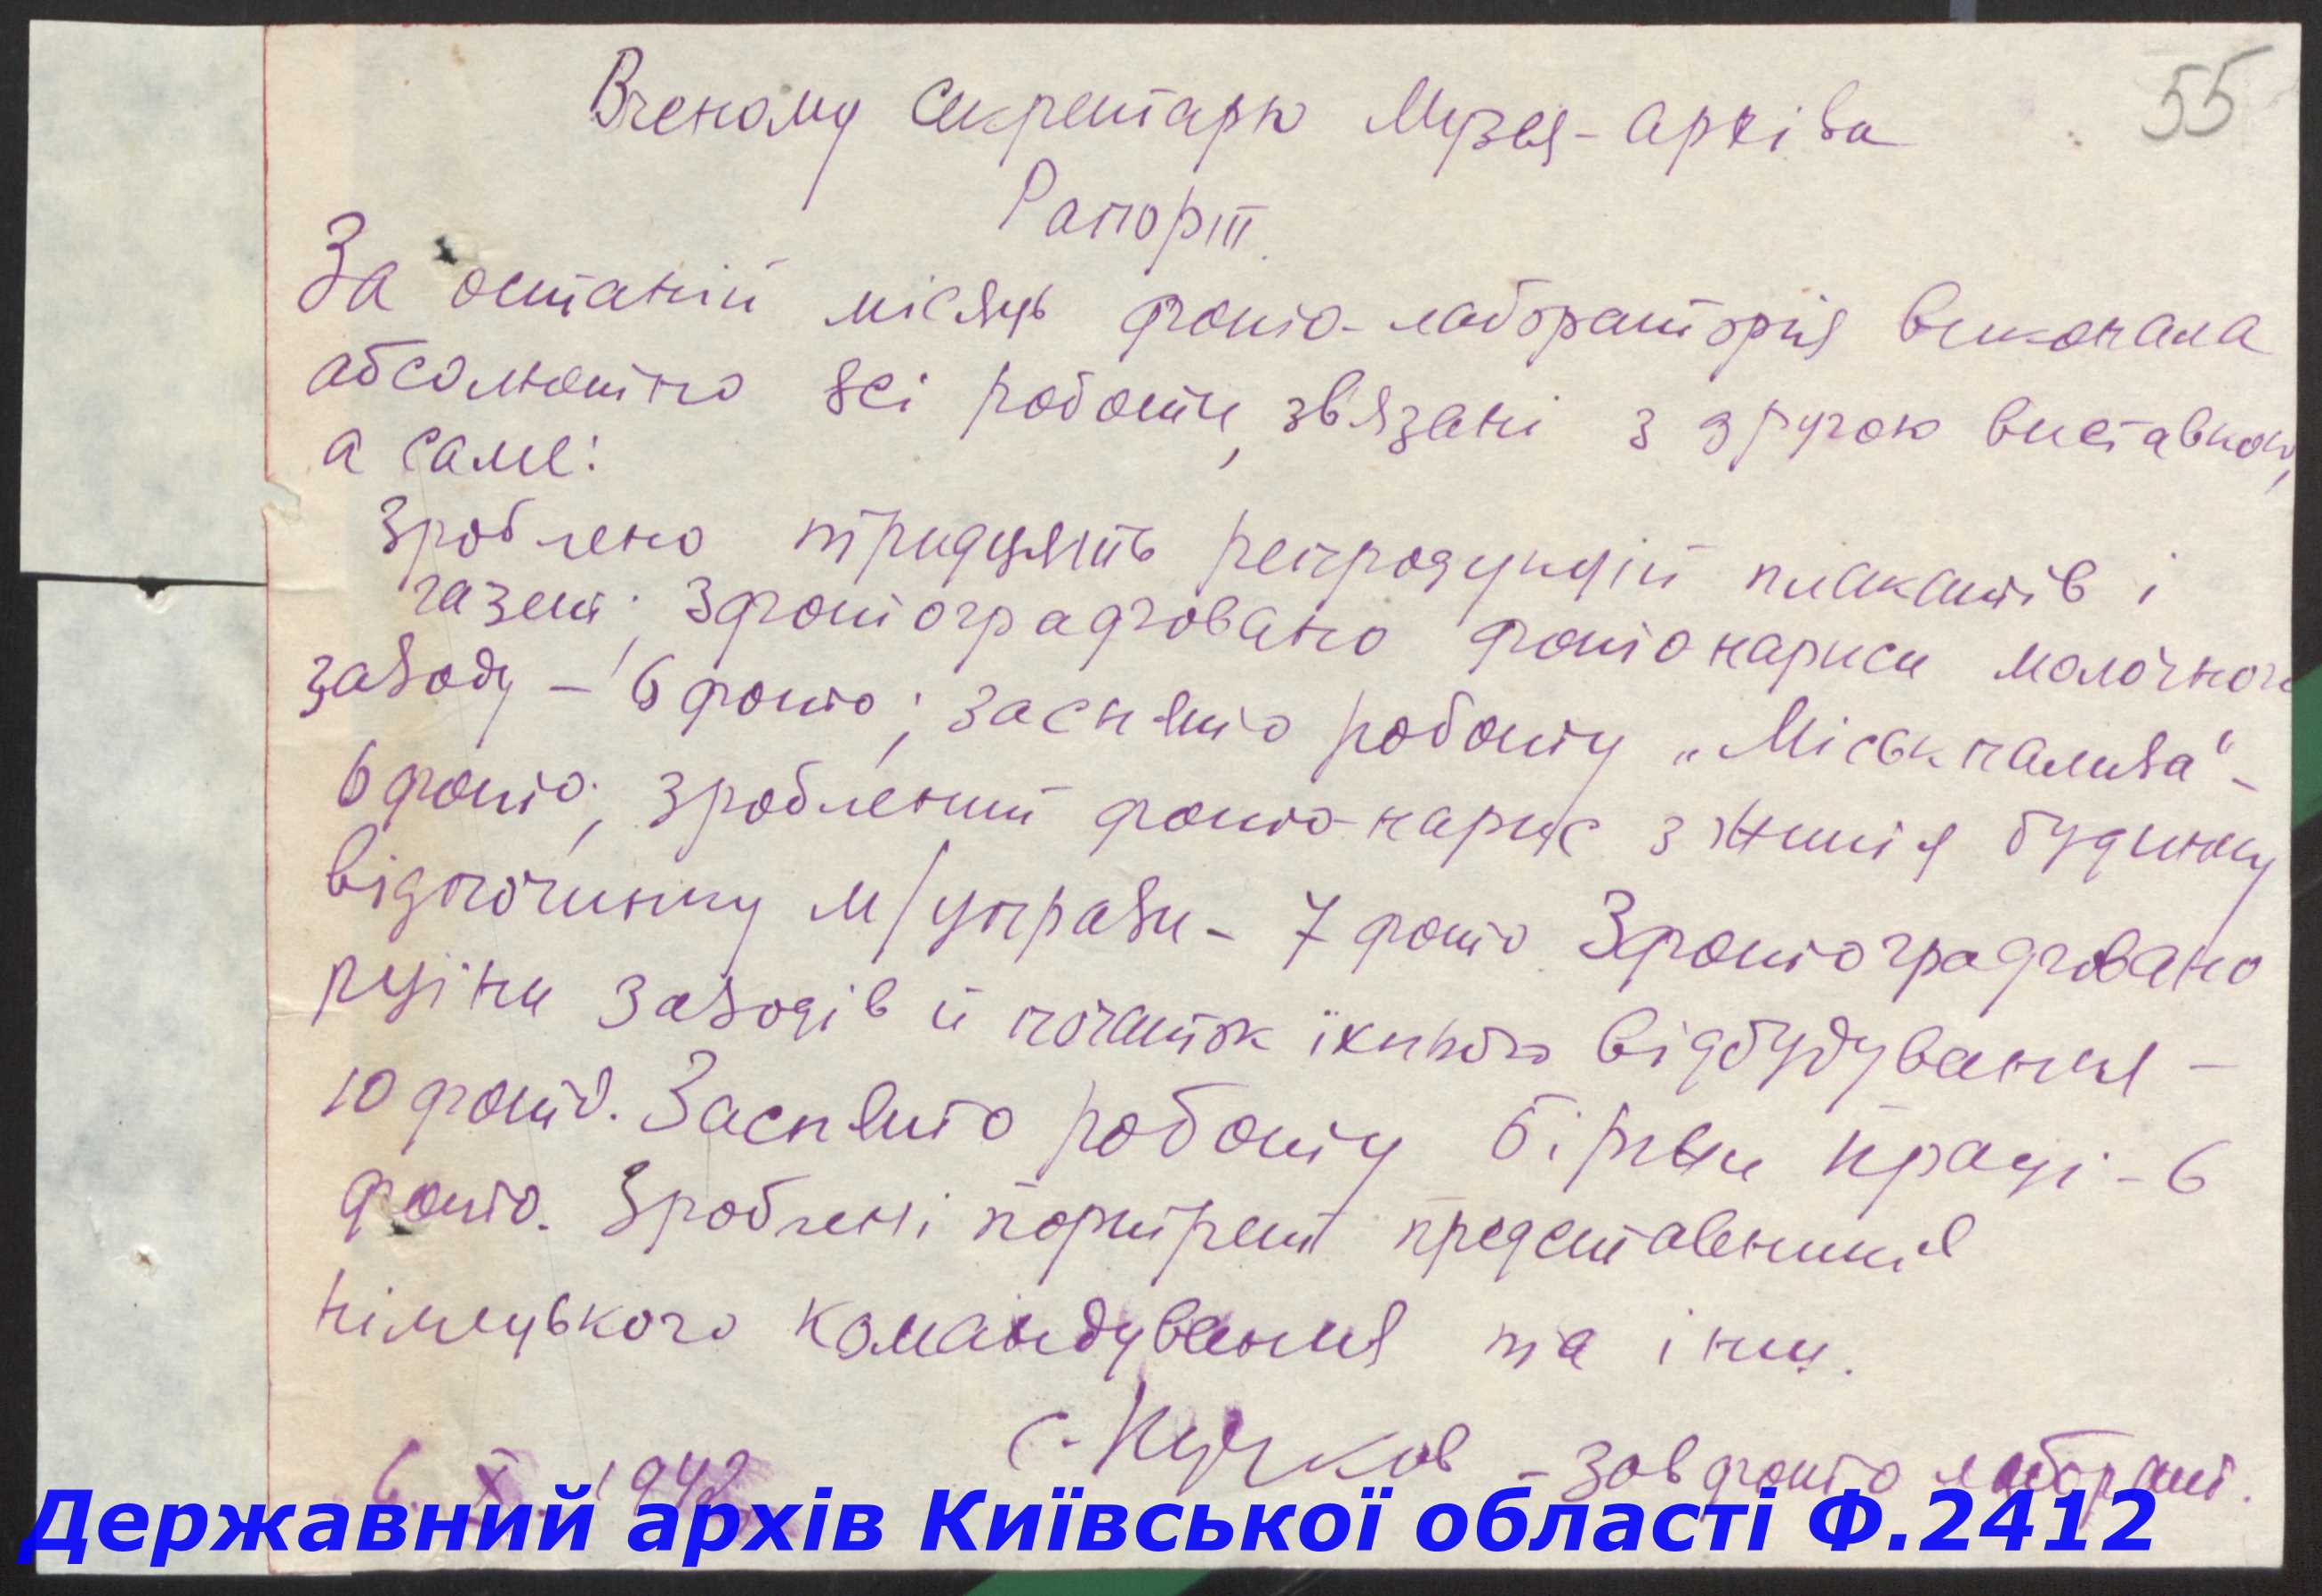 55
Вченому Секретарю Музея-архіва
Рапорт.
За останій місяць фото-лабораторія виконала
абсолютно всі роботи, звʼязані з другою виставкою,
а саме:
Зроблено тридцять репродукцій плакатів і
газет; Зфотографовано фотонариси молочного
заводу – 6 фото; заснято роботу „Міськпалива“ –
6 фото; зроблений фото-нарис з життя будинку
відпочинку м/управи – 7 фото. Зфотографовано
руїни заводів й початок їхнього відбудування –
10 фото. Заснято роботу біржи праці – 6
фото. Зроблені портрети представників
німецького командування та інш.
6. X. 1942
С. – завфото лаборат.
Державний архів Київської області Ф.2412